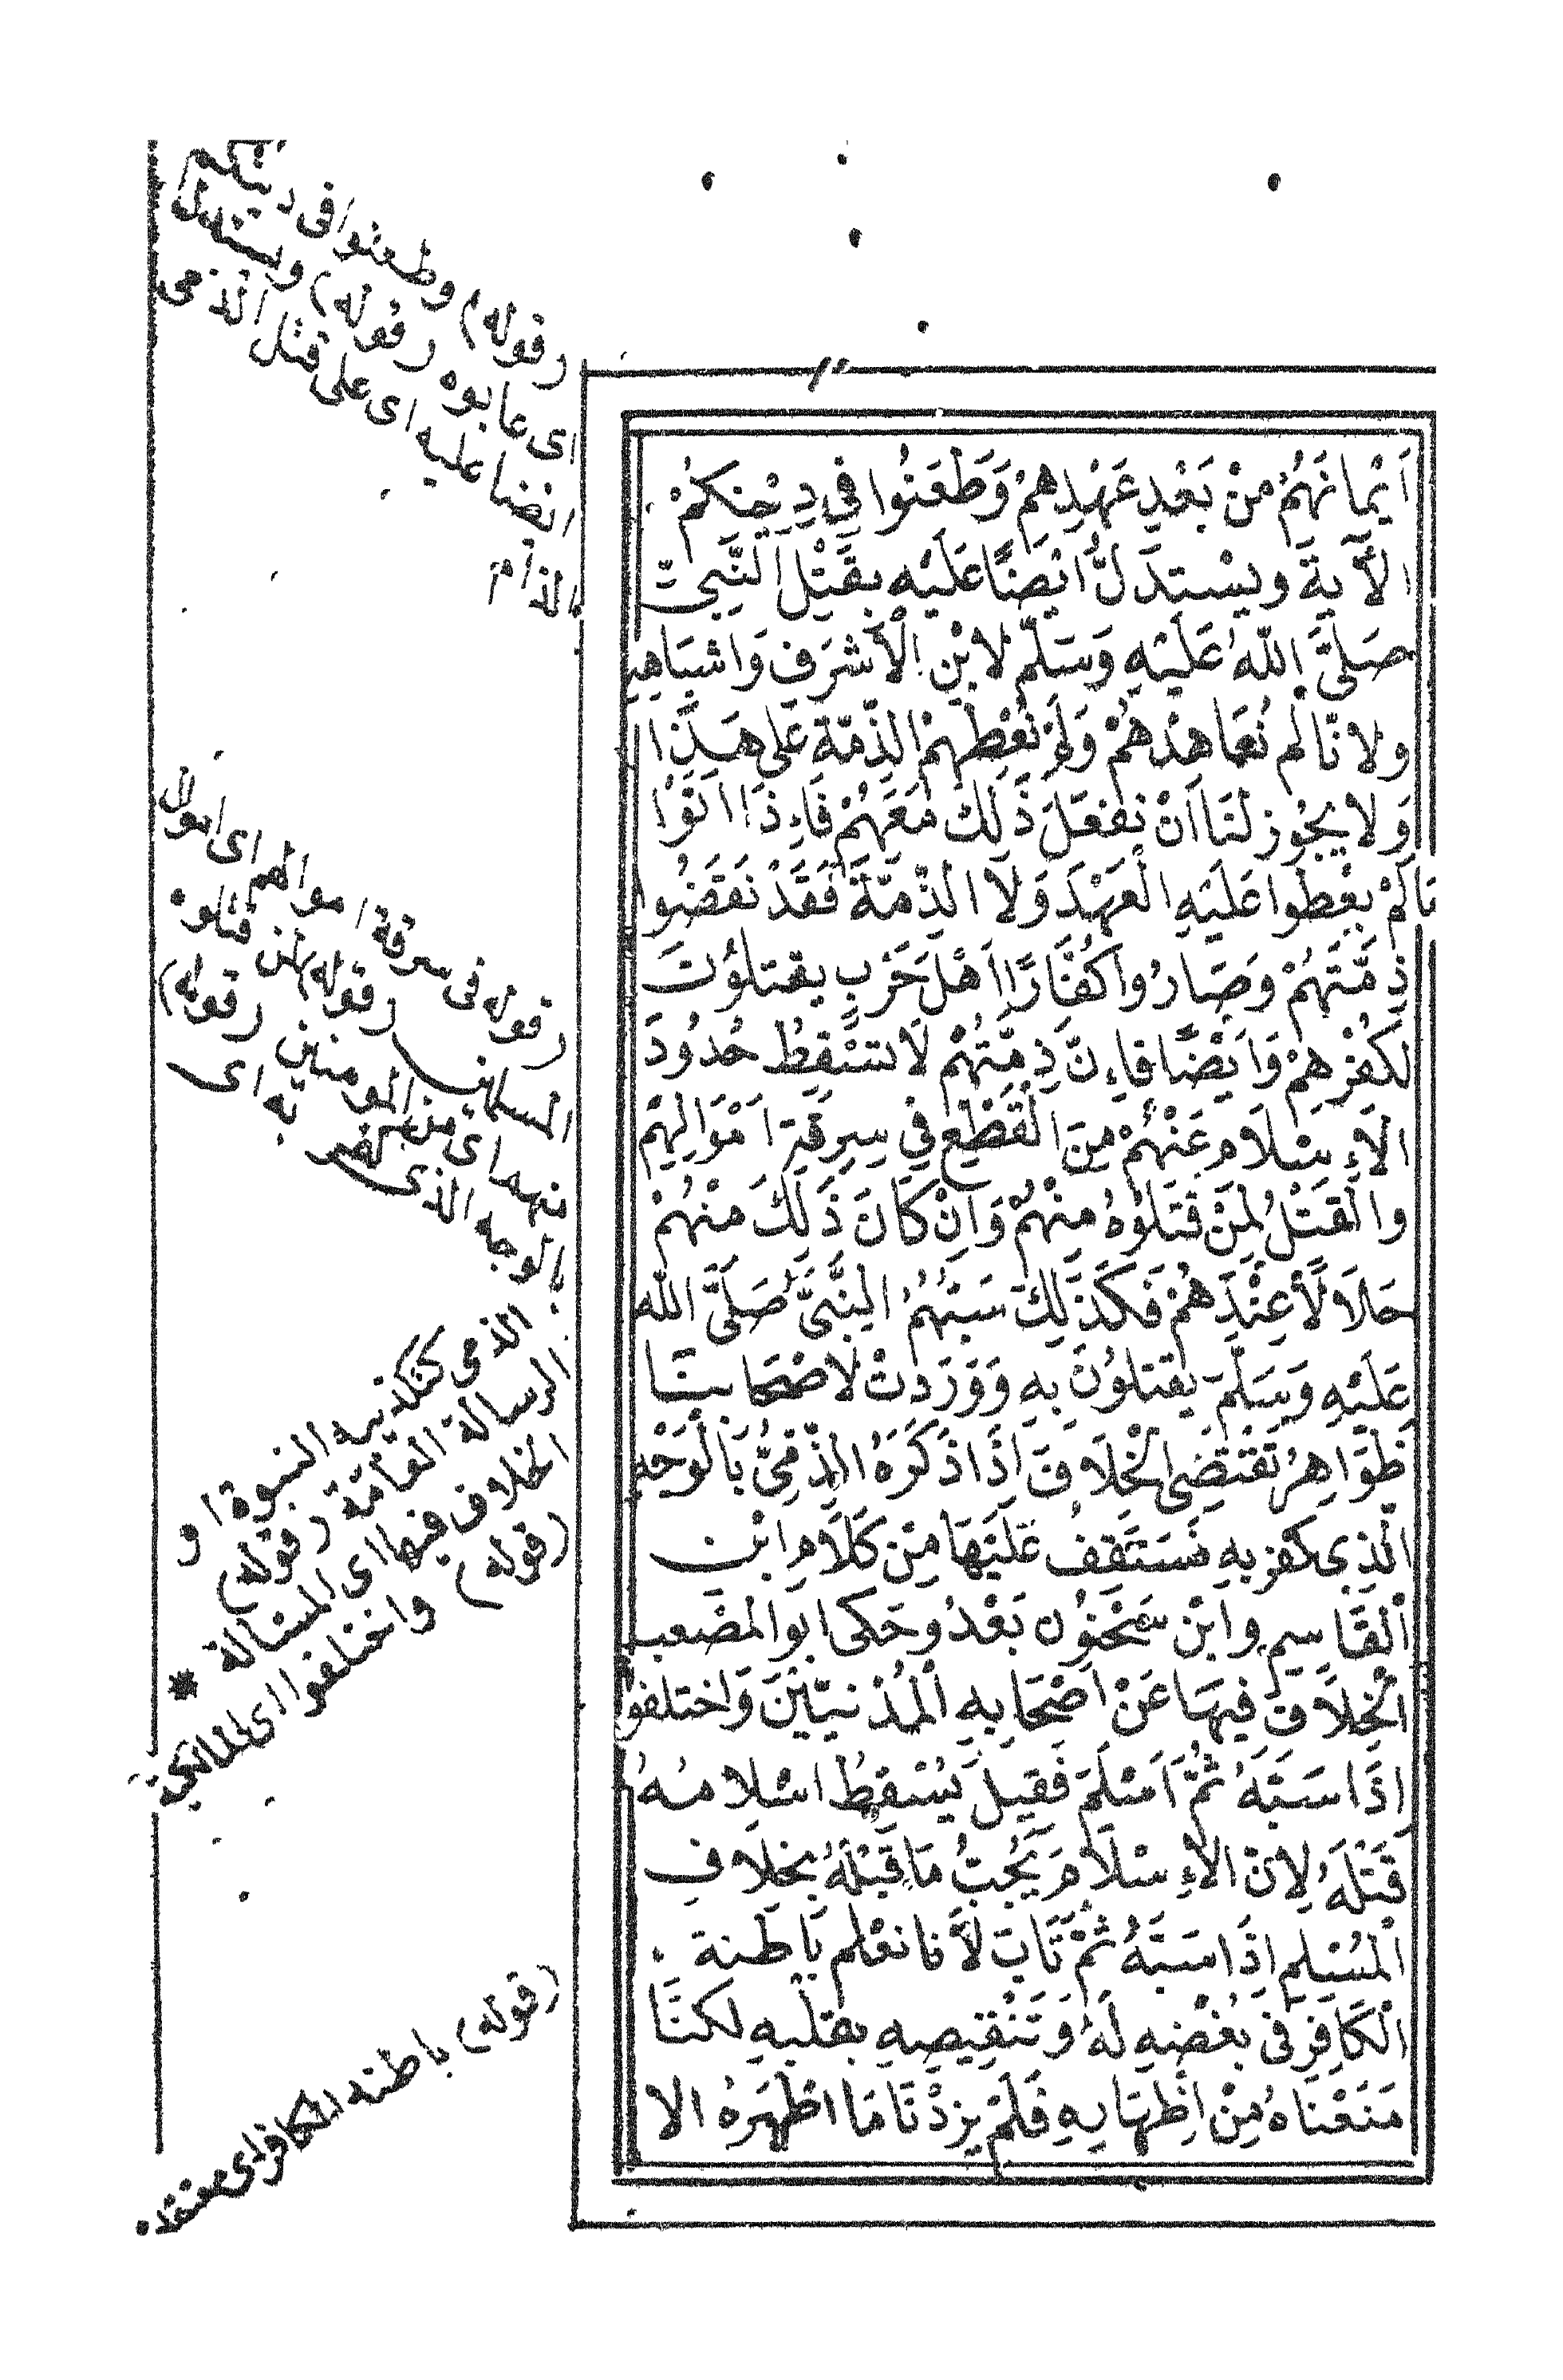 اَيْمانَهُمْ مِنْ بَعْدِ عَهْدِهِمْ وَطَعَنُوا فِي دِينِكُمْ
الْآيَةَ ويسْتدَلُّ اَيْضًا عَلَيْهِ بِقَتْلِ النَّبِيِّ
صَلَّى اللّٰهُ عَلَيْهِ وَسَلَّمَ لابْنِ الْأَشرَفِ وَاشبَاهِهِ
ولانّا لَم نُعَاهِدْهُمْ وَلَمْ نُعْطِهِمْ الذِّمّةَ عَلى هَذَا
وَلا يَجُوز لَنَا اَنْ نفعَلَ ذَلِكَ مَعَهُمْ فَاِذَا اَتَوْا
مَالَمْ يعْطوا عَلَيْهِ الْعَهْدَ وَلَا الذِّمَّةَ فَقَدْ نَقَضُوا
ذِمَّتَهُمْ وَصَارُوا كُفَّارًا اَهْلَ حَرْبٍ يقتلوُنَ
لكُفْرِهِمْ وَاَيْضًا فاِنَّ ذِمَّتَهُمْ لَا تسْقِطُ حُدُودَ
الاِسْلَامِ عَنْهُمْ مِنَ الْقَطْعِ فِي سِرِقَةِ اَمْوَالِهِمْ
والْقَتْلُ لِمَنْ قَتَلوُهُ مِنْهُمْ وَاِنْ كَانَ ذَلِكَ مِنْهُمْ
حَلَالًا عِنْدَهُمْ فَكَذَلِكَ سَبُّهُمُ النَّبِيَّ صَلَّى اللّٰه
عَلَيْهِ وَسَلَّمَ يقتلوُنَ بِهِ وَوَرَدتْ لاَصْحَابِنَا
ظَوَاهِرُ تَقْتَضِى الْخِلَافَ اذَا ذَكَرَهُ الذِّمِّيُّ بَالْوَجْهِ
الَّذِى كفر بِهِ سَتَقِفُ عَلَيْهَا مِنْ كَلَامِ ابْنِ
اَلْقَاسِمِ وابْن سَحْنوُن بَعْدُ وحَكى ابو الْمُصْعب
الْخِلَافَ فِيهَا عَنْ اَصْحَابِهِ الْمَدَنيّيْنَ وَاختلفوُا
اِذَا سَبَّهُ ثُمَّ اَسْلَمَ فَقِيلَ يُسْقِطُ اسْلامهُ
قَتْلَهُ لِانّ الاِسْلَامَ يَجُبُّ مَا قَبْلَهُ بِخِلَافِ
الْمُسْلِمِ اِذَا سَبَّهُ ثُمَّ تَابَ لَأَنا نعْلم بَاطنة
الْكَافِرِ فى بُغْضِهِ لَهُ وَتَنْقِيصِهِ بقَلْبِهِ لكنَّا
مَنَعْناهُ مِنْ اِظْهَارِهِ فَلَمْ يزِدْنَا مَا اظْهَرَهُ الا
(قوله) وطعنوا فى دينكم
اى عابوه (قوله) ويستدل
ايضا عليه اى على قتل الذمى
الذام
(قوله فى سرقة اموالهم اى اموال
المسلمين (قوله لمن قتلوه
منهم اى من المومنين (قوله)
بالوجه الذى كفر به اى
الذمى كتكذيبه النبوة او
الرسالة العامّة (قوله)
الخلاف فيها اى المسالة *
(قوله) واختلفوا اى المالكية
(قوله) باطنه الكافر اى معتقده